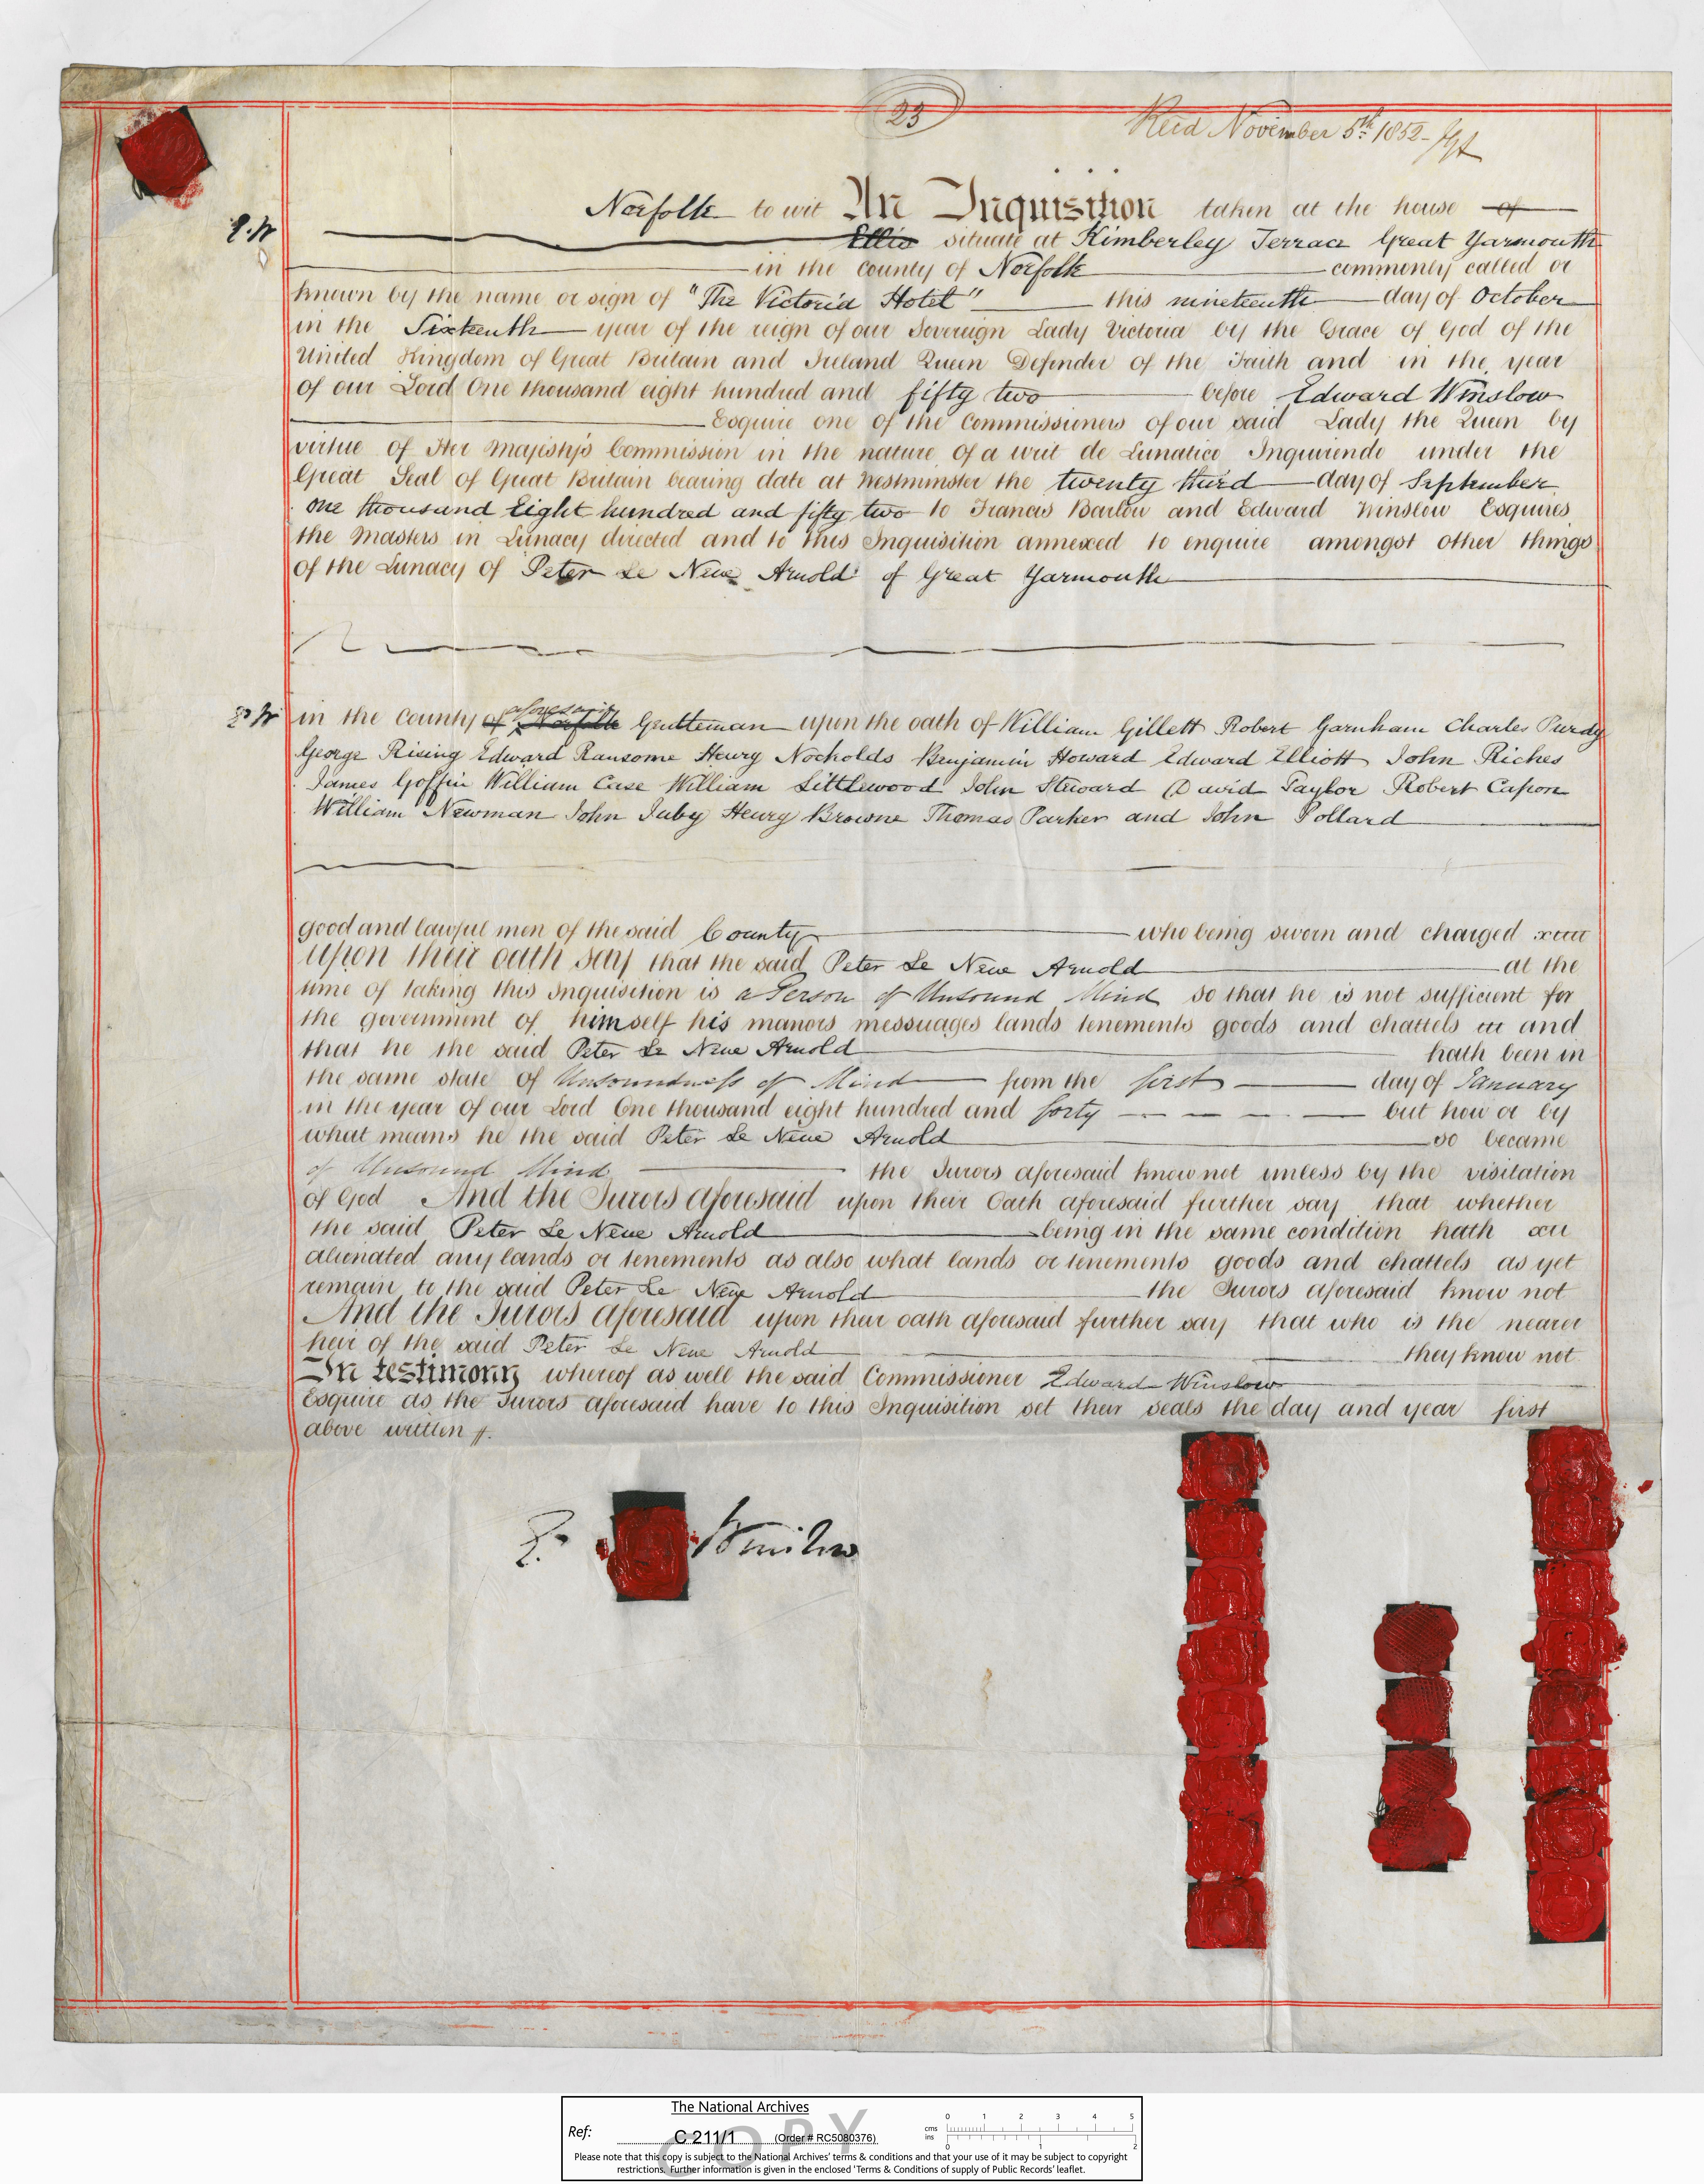 23
Recd November 5th 1852
Norfolk to wit An Inquisition taken at the house of
E.W
Ellis situate at Kimberley Terrace Great Yarmouth
in the county of Norfolk commonly called or
known by the name or sign of "The Victoria Hotel" this nineteenth day of October
in the Sixteenth year of the reign of our Sovereign Lady Victoria by the Grace of God of the
United Kingdom of Great Britain and Ireland Queen Defender of the Faith and in the year
of our Lord One thousand eight hundred and fifty two before Edward Winslow
Esquire one of the Commissioners of our said Lady the Queen by
virtue of Her Majesty's Commission in the nature of a writ de Lunatico Inquirendo under the
Great Seal of Great Britain bearing date at Westminster the twenty third day of September
one thousand Eight hundred and fifty two to Francis Barlow and Edward Winslow Esquires
the Masters in Lunacy directed and to this Inquisition annexed to enquire amongst other things
of the Lunacy of Peter Le Neve Arnold of Great Yarmouth
E.W
in the County of Norfolk aforesaid Gentleman upon the oath of William Gillett Robert Garnham Charles Purdy
George Rising Edward Ransome Henry Nockolds Benjamin Howard Edward Elliott John Riches
James Goffin William Case William Littlewood John Steward David Taylor Robert Capon
William Newman John Juby Henry Browne Thomas Parker and John Pollard
good and lawful men of the said County who being sworn and charged
upon their oath say that the said Peter Le Neve Arnold at the
time of taking this Inquisition is a Person of Unsound Mind so that he is not sufficient for
the government of himself his manors messuages lands tenements goods and chattels and
that he the said Peter Le Neve Arnold hath been in
the same state of Unsoundness of Mind from the first day of January
in the year of our Lord One thousand eight hundred and forty but how or by
what means he the said Peter Le Neve Arnold so became
of Unsound Mind the Jurors aforesaid know not unless by the visitation
of God And the Jurors aforesaid upon their Oath aforesaid further say that whether
the said Peter Le Neve Arnold being in the same condition hath
alienated any lands or tenements as also what lands or tenements goods and chattels as yet
remain to the said Peter Le Neve Arnold the Jurors aforesaid know not
And the Jurors aforesaid upon their oath aforesaid further say that who is the nearer
heir of the said Peter Le Neve Arnold they know not
In testimony whereof as well the said Commissioner Edward Winslow
Esquire as the Jurors aforesaid have to this Inquisition set their seals the day and year first
above written
E. Winslow
The National Archives
Ref: C 211/1 (Order # RC5080376)
cms 0 1 2 3 4 5
ins 0 1 2
COPY
Please note that this copy is subject to the National Archives' terms & conditions and that your use of it may be subject to copyright
restrictions. Further information is given in the enclosed 'Terms & Conditions of supply of Public Records' leaflet.